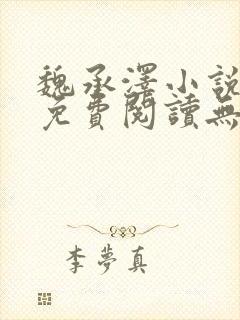 魏承澤小說
免費閱讀無
李夢真